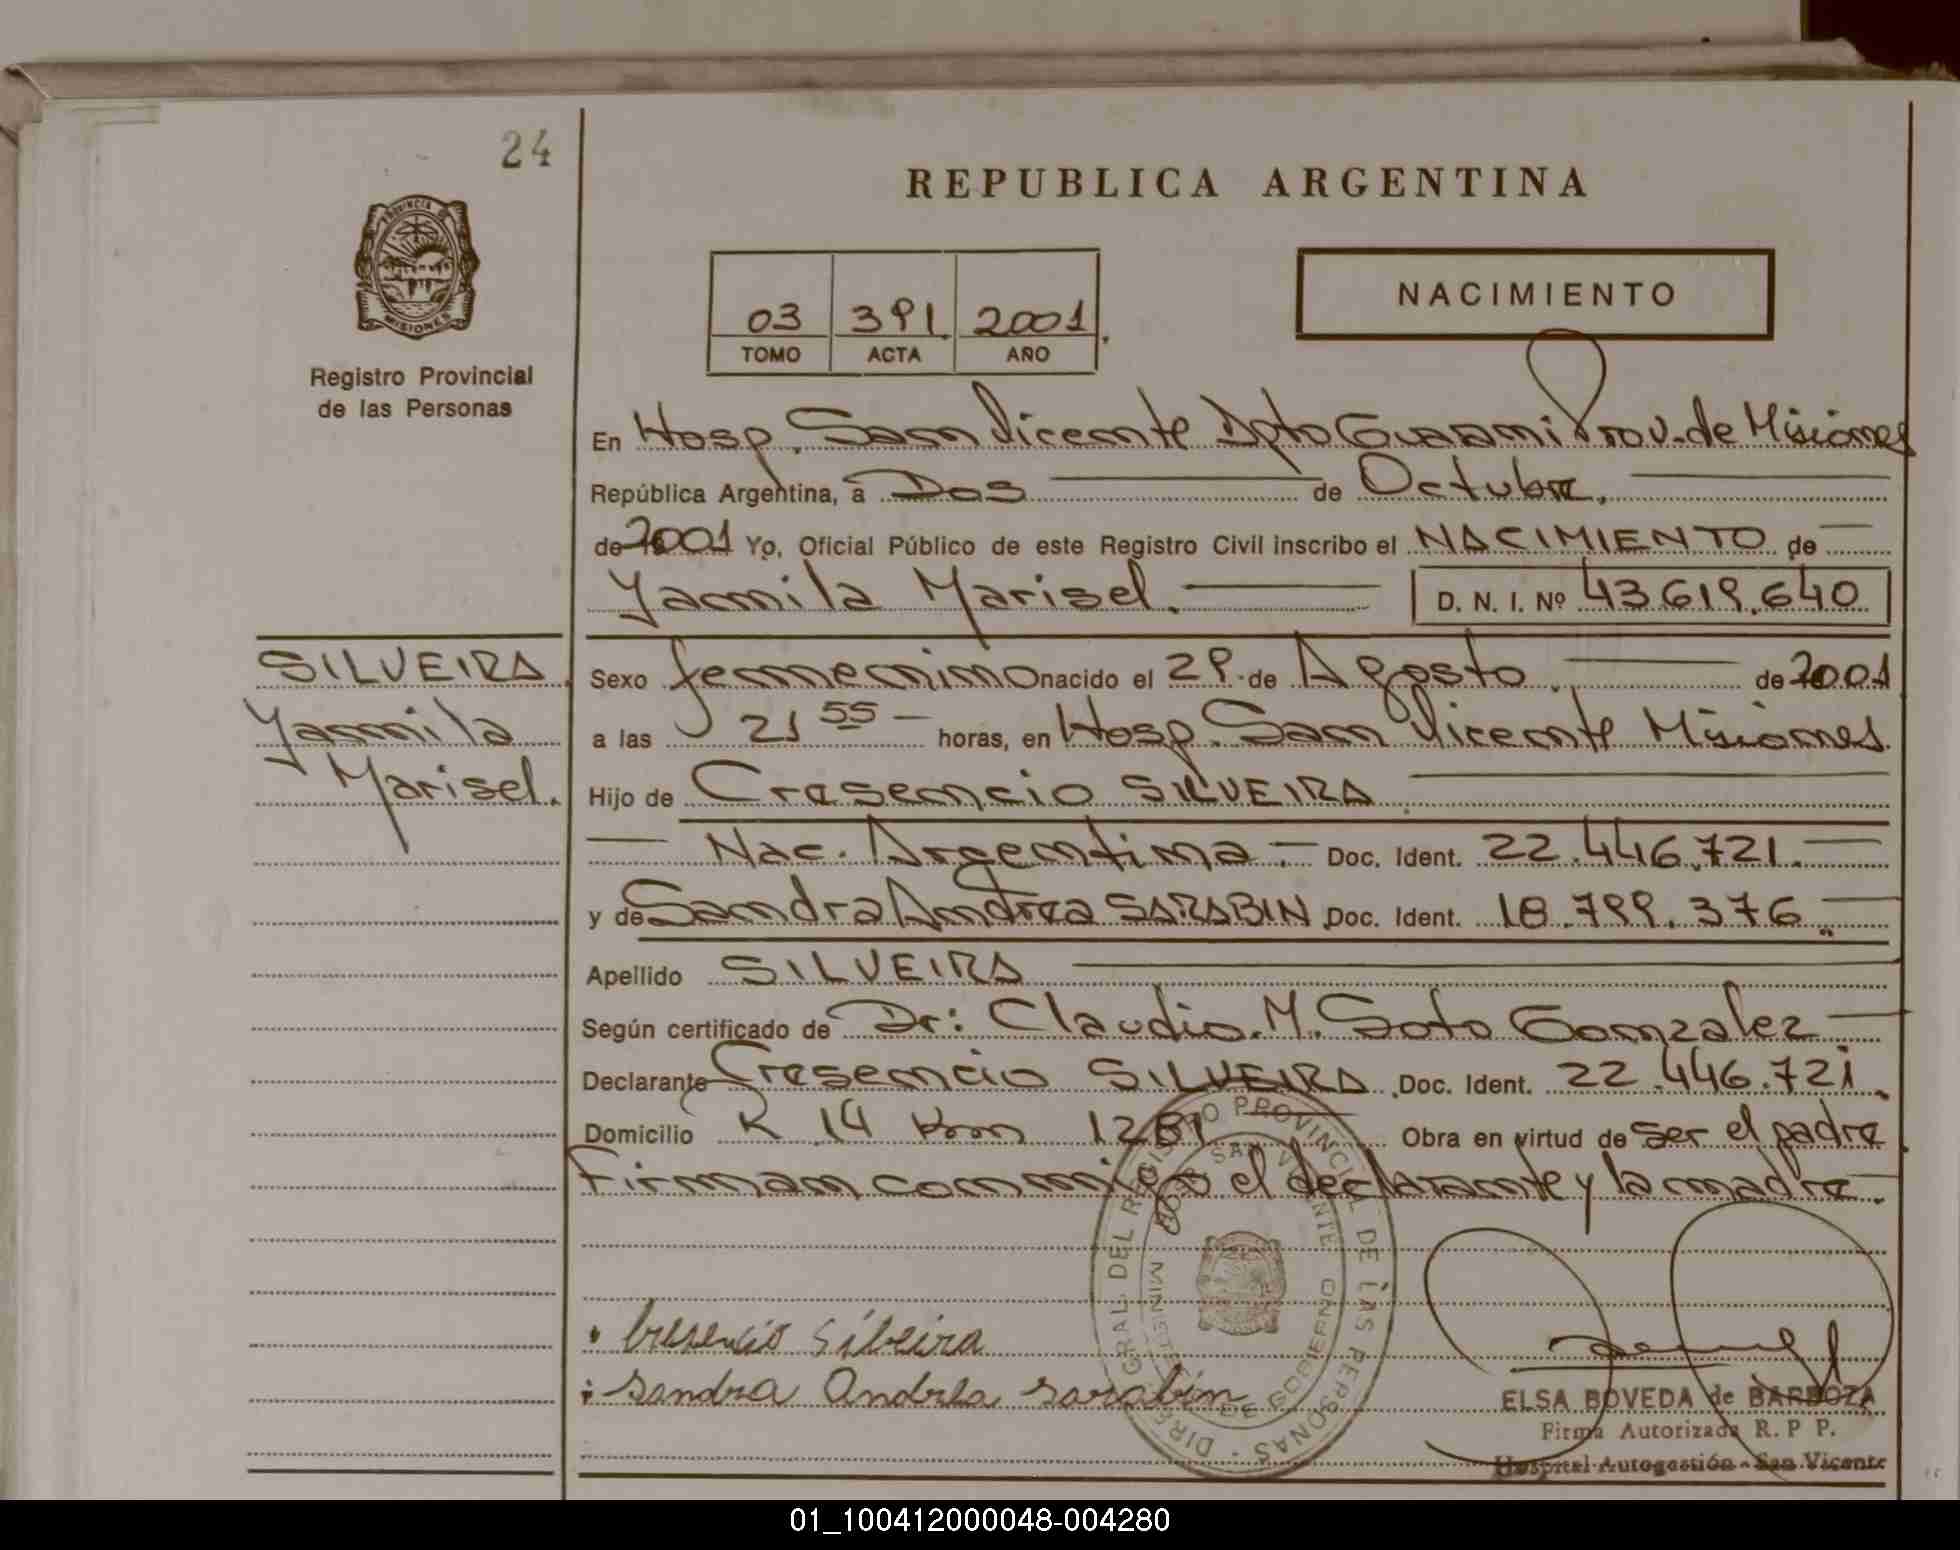 24
REPUBLICA ARGENTINA
PROVINCIA DE
MISIONES
Registro Provincial
de las Personas
03 391 2001
TOMO ACTA AÑO
NACIMIENTO
En Hosp. San Vicente Dpto Guarani Prov. de Misiones
República Argentina, a Dos de Octubre.
de 2001 Yo, Oficial Público de este Registro Civil inscribo el NACIMIENTO de
Yamila Marisel. D. N. I. Nº 43.619.640
SILVEIRA
Yamila
Marisel.
Sexo femenino nacido el 29 de Agosto de 2001
a las 21 55 horas, en Hosp. San Vicente Misiones.
Hijo de Cresencio SILVEIRA
Nac. Argentina. Doc. Ident. 22.446.721.
y de Sandra Andrea SARABIN Doc. Ident. 18.799.376
Apellido SILVEIRA
Según certificado de Dr: Claudio. M. Soto Gonzalez
Declarante Cresencio SILVEIRA Doc. Ident. 22.446.721.
Domicilio R 14 Km 1281 Obra en virtud de ser el padre
Firman conmigo el declarante y la madre.
DIR. GRAL. DEL REGISTRO PROVINCIAL DE LAS PERSONAS
SAN VICENTE
MINISTERIO DE GOBIERNO
Cresencio Silveira
Sandra Andrea Sarabin
ELSA BOVEDA de BARBOZA
Firma Autorizada R. P P.
Hospital Autogestión - San Vicente
01_100412000048-004280